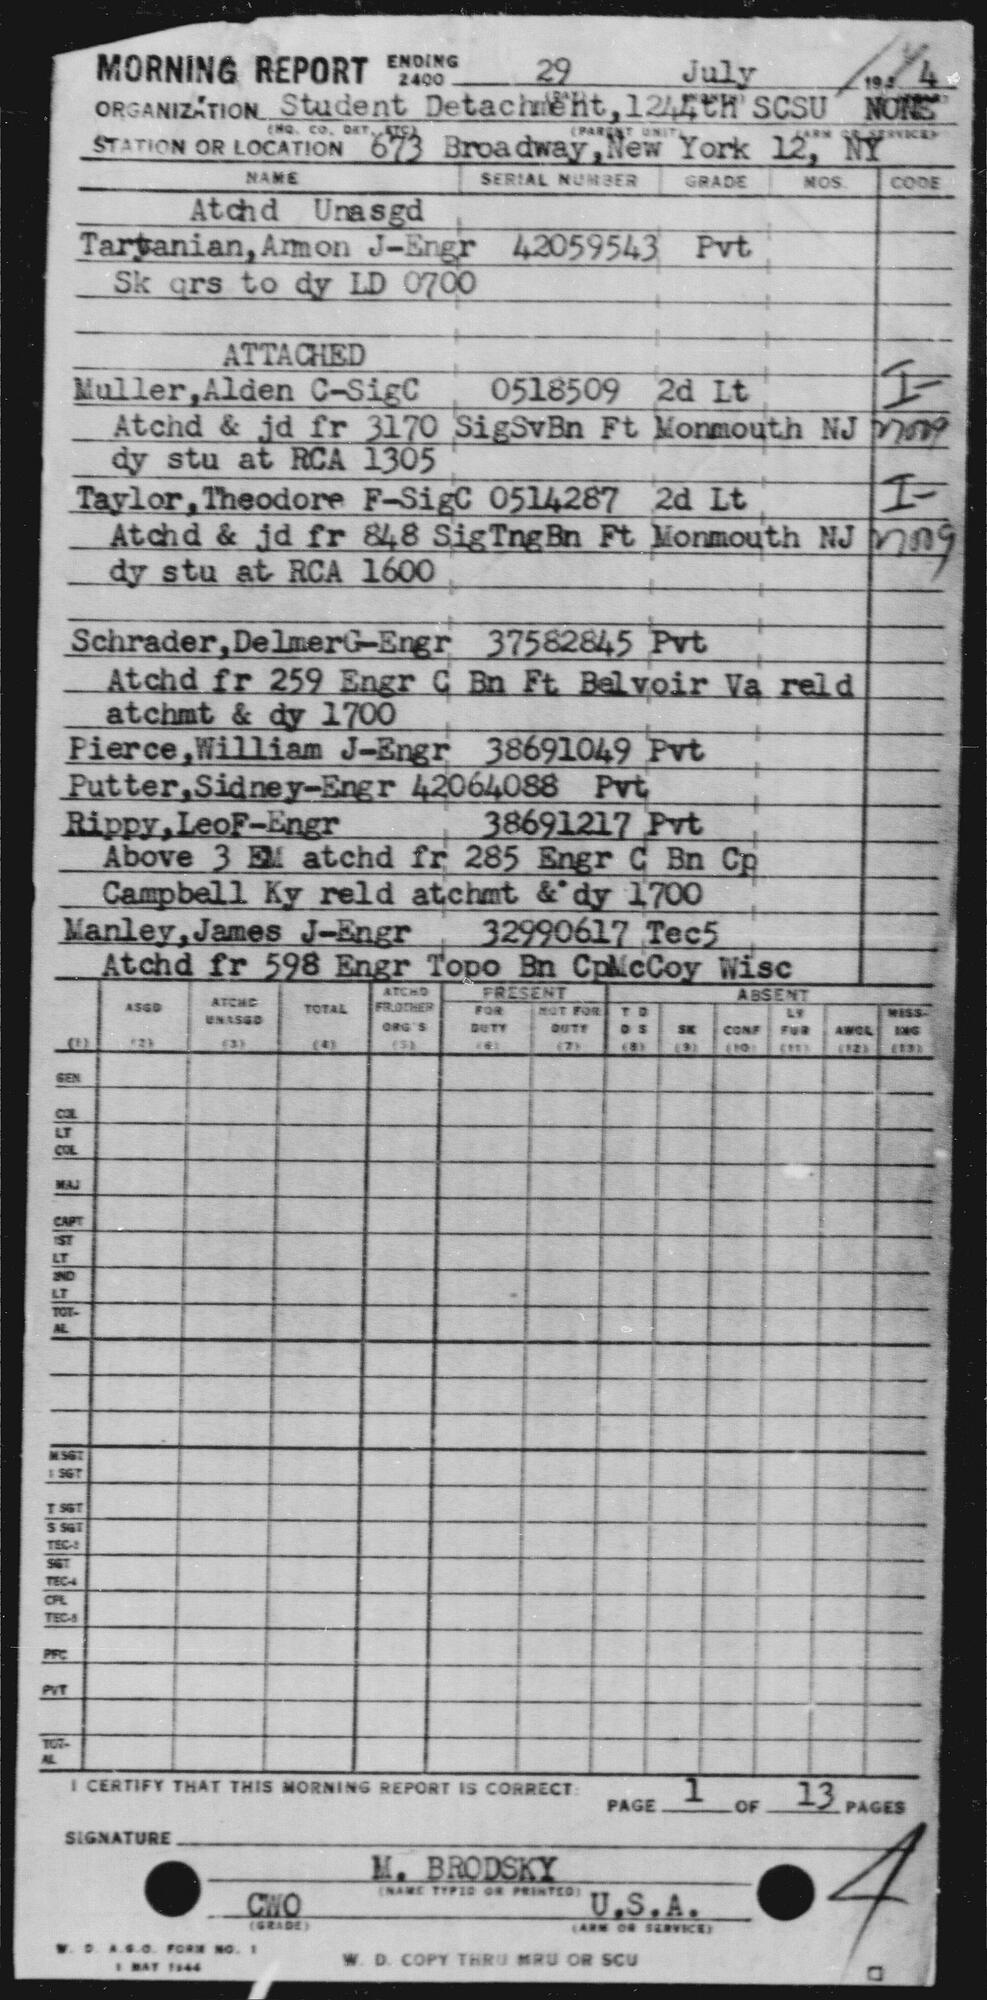 MORNING REPORT ENDING 2400 29 July 194 4
ORGANIZATION Student Detachment, 1244th SCSU NONS
(HQ. CO, DET, ETC) (PARENT UNIT) (ARM OR SERVICE)
STATION OR LOCATION 673 Broadway, New York 12, NY
NAME SERIAL NUMBER GRADE MOS. CODE
Atchd Unasgd
Tartanian, Armon J-Engr 42059543 Pvt
Sk qrs to dy LD 0700
ATTACHED
Muller, Alden C-SigC 0518509 2d Lt I-
Atchd & jd fr 3170 SigSvBn Ft Monmouth NJ
dy stu at RCA 1305
Taylor, Theodore F-SigC 0514287 2d Lt I-
Atchd & jd fr 848 SigTngBn Ft Monmouth NJ
dy stu at RCA 1600
Schrader, DelmerG-Engr 37582845 Pvt
Atchd fr 259 Engr C Bn Ft Belvoir Va reld
atchmt & dy 1700
Pierce, William J-Engr 38691049 Pvt
Putter, Sidney-Engr 42064088 Pvt
Rippy, LeoF-Engr 38691217 Pvt
Above 3 EM atchd fr 285 Engr C Bn Cp
Campbell Ky reld atchmt & dy 1700
Manley, James J-Engr 32990617 Tec5
Atchd fr 598 Engr Topo Bn CpMcCoy Wisc
ASGD ATCHD UNASGD TOTAL ATCHD FR.OTHER ORG'S PRESENT FOR DUTY NOT FOR DUTY ABSENT T D D S SK CONF LV FUR AWOL MISS-ING
(1) (2) (3) (4) (5) (6) (7) (8) (9) (10) (11) (12) (13)
GEN
COL
LT
COL
MAJ
CAPT
1ST
LT
2ND
LT
TOT-
AL
M SGT
1 SGT
T SGT
S SGT
TEC-3
SGT
TEC-4
CPL
TEC-5
PFC
PVT
TOT-
AL
I CERTIFY THAT THIS MORNING REPORT IS CORRECT:
PAGE 1 OF 13 PAGES
SIGNATURE
M. BRODSKY
(NAME TYPED OR PRINTED)
CWO U.S.A.
(GRADE) (ARM OR SERVICE)
4
W. D. A.G.O. FORM NO. 1
1 MAY 1944
W. D. COPY THRU MRU OR SCU